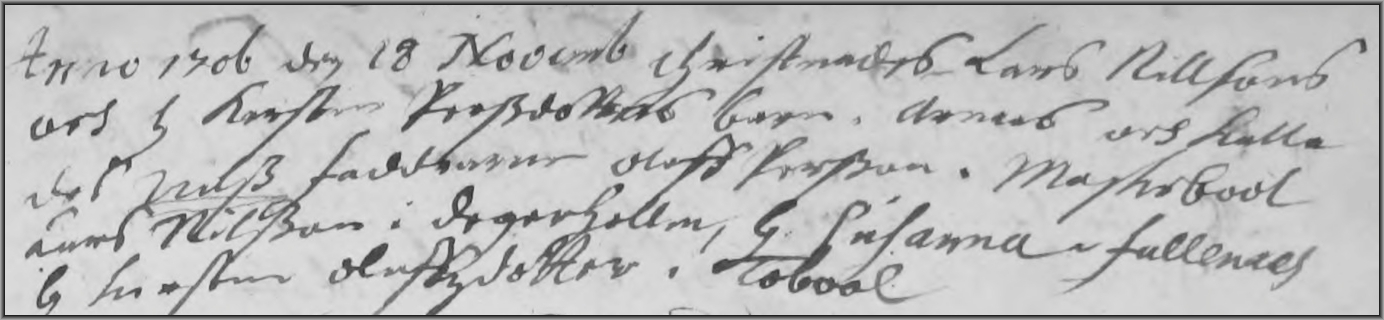 Anno 1706 den 18 Novemb Christnades Lars Nillsons
och h Kerstin Perßdotters barn. Annas och kalla
des faddrarne oloff Perßon i Masterbool
Lars Nilßon i degerhollm, h. Susanna i fallenäs
h kerstin oluffzdotter i Tobool